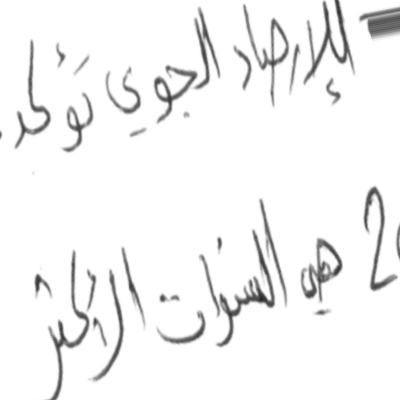 للإرصاد الجوي تؤكد
هي السنوات الأكثر